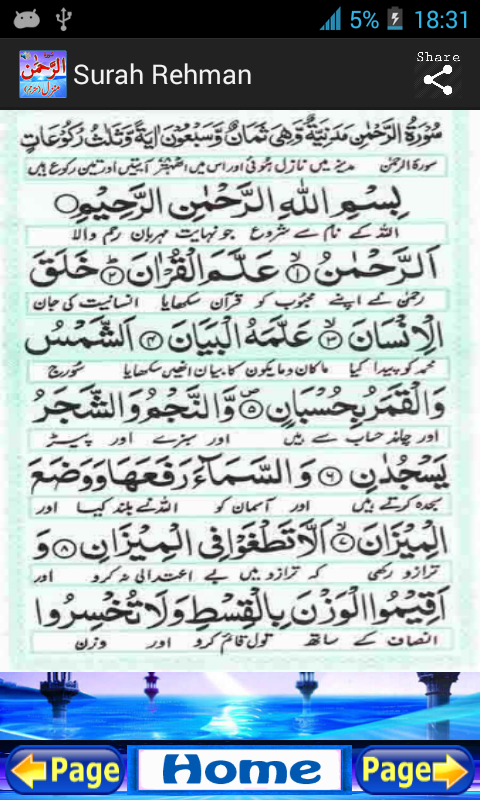 5% 18:31
الرحمن
Surah Rehman
Share
سُوْرَةُ الرَّحْمٰنِ مَدَنِيَّةٌ وَّهِيَ ثَمَانٌ وَّسَبْعُوْنَ اٰيَةً وَّثَلٰثُ رُكُوْعَاتٍ
سورۃ الرحمٰن مدینے میں نازل ہوئی اور اس میں اٹھہتر آیتیں اور تین رکوع ہیں
بِسْمِ اللّٰهِ الرَّحْمٰنِ الرَّحِيْمِ
اللہ کے نام سے شروع جو نہایت مہربان رحم والا
اَلرَّحْمٰنُ ۙ﴿۱﴾ عَلَّمَ الْقُرْاٰنَ ؕ﴿۲﴾ خَلَقَ
رحمٰن نے اپنے محبوب کو قرآن سکھایا انسانیت کی جان
الْاِنْسَانَ ۙ﴿۳﴾ عَلَّمَهُ الْبَيَانَ ﴿۴﴾ اَلشَّمْسُ
محمد کو پیدا کیا ماکان ومایکون کا بیان انھیں سکھایا سورج
وَالْقَمَرُ بِحُسْبَانٍ ۪﴿۵﴾ وَّالنَّجْمُ وَالشَّجَرُ
اور چاند حساب سے ہیں اور سبزے اور پیڑ
يَسْجُدٰنِ ﴿۶﴾ وَالسَّمَآءَ رَفَعَهَا وَوَضَعَ
سجدہ کرتے ہیں اور آسمان کو اللہ نے بلند کیا اور
الْمِيْزَانَ ۙ﴿۷﴾ اَلَّا تَطْغَوْا فِي الْمِيْزَانِ ﴿۸﴾ وَ
ترازو رکھی کہ ترازو میں بے اعتدالی نہ کرو اور
اَقِيْمُوا الْوَزْنَ بِالْقِسْطِ وَلَا تُخْسِرُوا
انصاف کے ساتھ تول قائم کرو اور وزن
Page Home Page